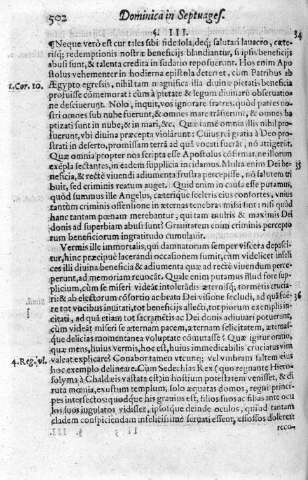 502 Dominica in Septuages.
§. III.
34
¶Neque verò est cur tales sibi fide sola, deq; salutari lauacro, cæte-
risq; redemptionis nostræ beneficiis blandiantur, si ipsis beneficiis
abusi sunt, & talenta credita in sudario reposuerunt. Hos enim Apo
stolus vehementer in hodierna epistola deterret, cum Patribus ab
1. Cor. 10. Ægypto egressis, nihil tam magnifica illa diuinæ pietatis beneficia
profuisse commemorat
desciuerunt. Nolo, inquit, vos ignorare fratres, quòd patres no-
stri omnes sub nube fuerunt, & omnes mare transierunt, & omnes ba
ptizati sunt in nube, & in mari, &c. Quæ tamen omnia nihil profuerunt,
vbi diuina præcepta violârunt: Cuius rei gratia à Deo pro-
strati in deserto, promissam terram ad quā vocati fuerāt, nō attigerūt.
Quæ omnia propter nos scripta esse Apostolus cōfirmat,
35
bit, sed criminis reatum auget. Quid enim in causa esse putamus,
quòd summus ille Angelus, cæterique sceleris eius consortes, vnius
tantùm criminis offensione in æternas tenebras missi sint: nisi quòd
hanc tantam pœnam merebantur, qui tam multis & maximis Dei
donis ad superbiam abusi sunt? Grauitatem enim criminis percepto
rum beneficiorum ingratitudo cumulauit.
Vermis ille immortalis, qui damnatorum semper viscera depasci-
tur, hinc præcipuè lacerandi occasionem sumit, cùm videlicet infeli
ces illi diuina beneficia & adiumenta quæ ad rectè viuendum perce-
perunt, ad memoriam reuocāt. Quale enim putamus illud fore sup-
plicium, cùm se miseri videāt intolerādis æternisq; tormētis crucia-
ri, & ab electorum cōsortio ac beata Dei visione secludi, ad quā scire
36
te tot vocibus inuitati, tot beneficiis allecti, tot piorum exēplis in-
citati, ad quā etiam tot sacramētis ac Dei donis adiutari poterant,
cùm videāt miseri se æternam pacem, æternam felicitatem, æternas-
que delicias momentanea voluptate cōmutasse? Quæ igitur oratio,
quæ mens, huius vermis, hoc est, huius immedicabilis cruciatus vim
4. Reg. vl. valeat explicare? Conabor tamen vtcunq; vel vmbram saltem eius
hoc exemplo delineare. Cùm Sedechias Rex (quo regnante Hiero-
solyma à Chaldæis vastata est) in hostium potestatem venisset, & di-
ruta mœnia, templum exustum, solo æquatas domos, regni princi-
pes interfectos, quodque his grauius est, filios suos ac filias ante ocu
los suos iugulatos vidisset, ipsosque deinde oculos, quiquid tantam
cladem conspiciendam infelicissimè seruati essent, effossos doleret
reccn